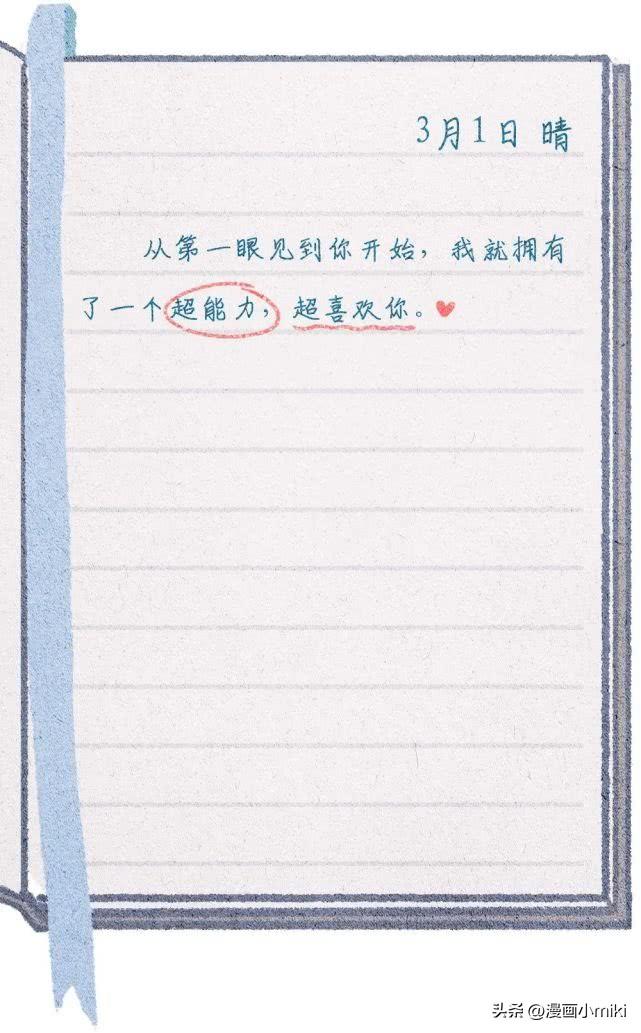 3月1日 晴
从第一眼见到你开始，我就拥有
了一个超能力，超喜欢你。
头条 @漫画小miki